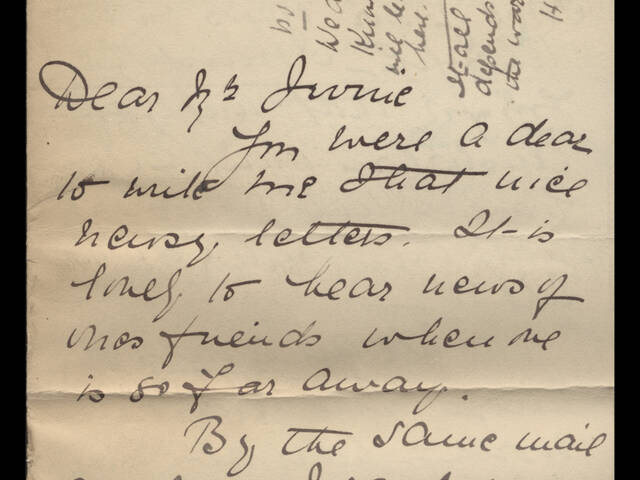 Dear Mr Irvine
You were a dear
to write me that nice
newsy letters. It is
lovely to hear news of
ones friends when one
is so far away.
By the same mail
It all
depends
the war
will be
here.